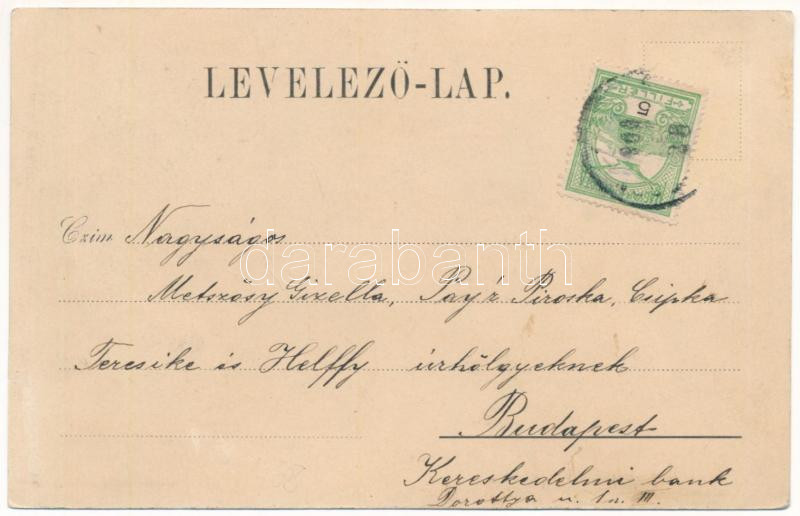 LEVELEZŐ-LAP.
FILLÉR
5
Czim Nagyságos
darabanth
Metszősy Gizella, Payr Piroska, Csipka
Teresike és Helffy úrhölgyeknek
Budapest
Kereskedelmi bank
Dorottya u. 1 sz. III.